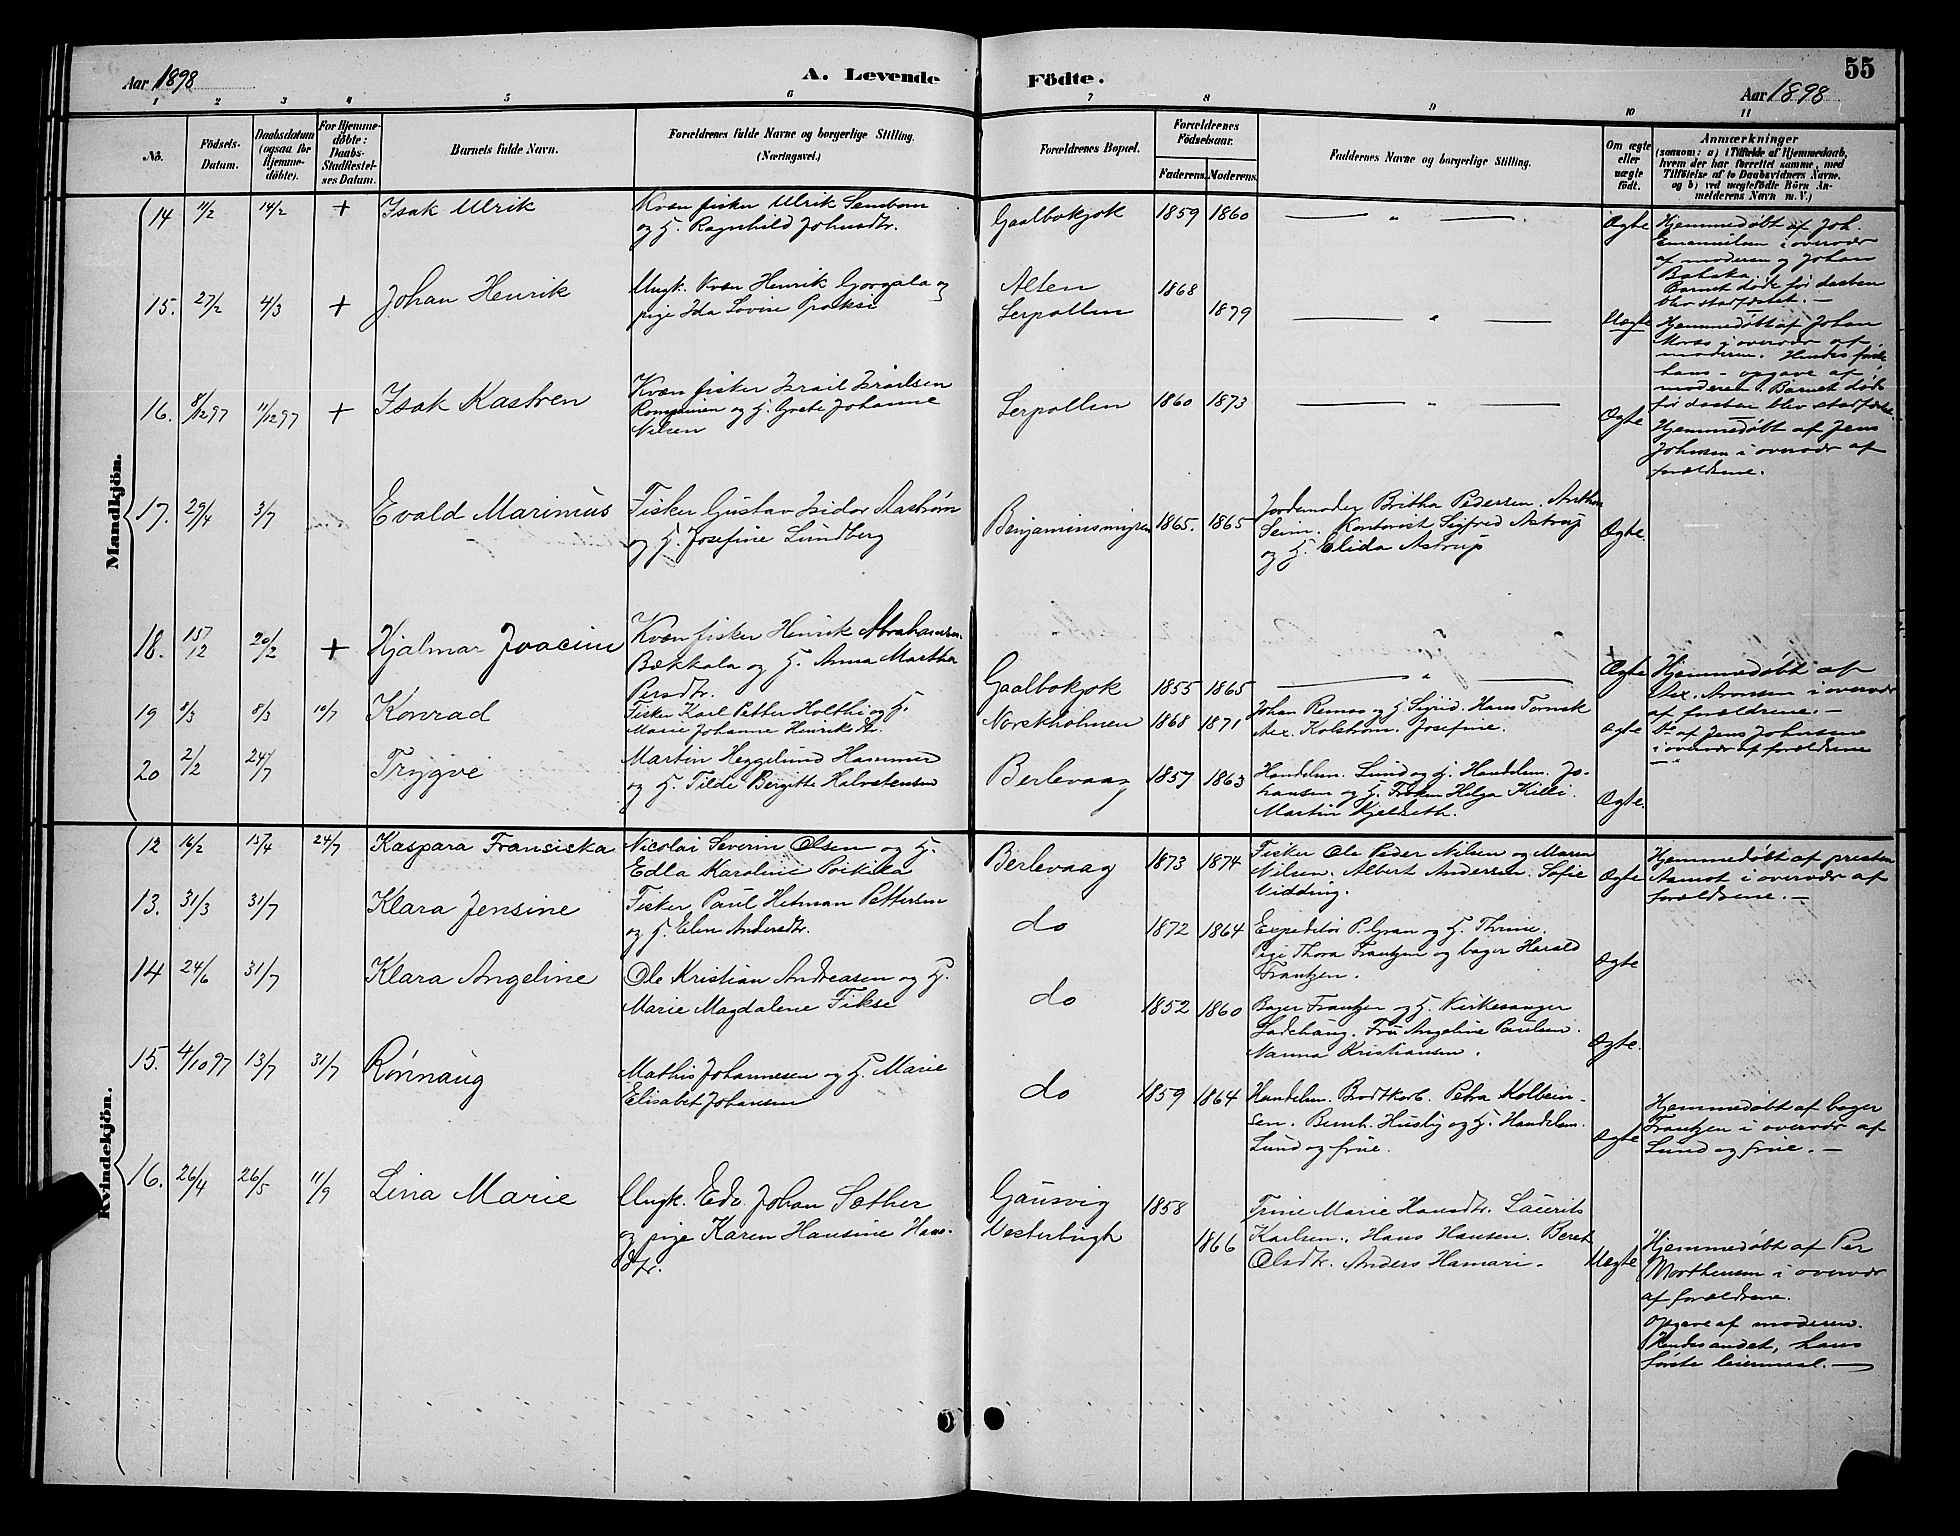 Aar 1898
A. Levende
Födte.
55
Aar 1898
1 2 3 4 5 6 7 8 9 10 11
No.
Födsels-
Datum.
Daabsdatum
(ogsaa for
Hjemme-
döbte).
For Hjemme-
döbte:
Daabs-
Stadfæstel-
ses Datum.
Barnets fulde Navn.
Forældrenes fulde Navne og borgerlige Stilling.
(Næringsvei.)
Forældrenes Bopæl.
Forældrenes
Födselsaar.
Faderens. Moderens.
Faddernes Navne og borgerlige Stilling.
Om ægte
eller
uægte
födt.
Anmærkninger
(saasom: a) i Tilfælde af Hjemmedaab,
hvem der har forrettet samme, med
Tilföielse af to Daabsvidners Navne,
og b) ved uægtefödte Börn An-
melderens Navn m. V.)
Mandkjön.
14 11/2 14/2 + Isak Ulrik
Kvæn fisker Ulrik
og H. Ragnhild Johnsdtr.
Gaalbokjok 1859 1860 — " — Ægte
Hjemmedøbt af Joh.
Emanuelsen i overvær
af moderen og Johan
Barnet døde før daaben
blev stadfæstet. —
15. 27/2 4/3 + Johan Henrik
Ungk. Kvæn Henrik Gorgala og
pige Ida Lovise
Alten 1868
Lerpollen 1879 — " — Uægte
Hjemmedøbt af Johan
i overvær af
moderen. Hendes første
hans - opgave af
moderen. Barnet døde
før daaben blev stadfæstet.
16. 8/12 97 11/12 97 + Isak Kastren
Kvæn fisker Israil Israilsen
og H. Grete Johanne
Nilsen
Lerpollen 1860 1873 — " — Ægte
Hjemmedøbt af Jens
Johnsen i overvær af
forældrene.
17. 29/4 3/7 Evald Marinius
Fisker Gustav Isidor Aastrøm
og H. Josefine Lundberg
1865. 1865
Jordemoder Britha Pedersen.
Kontorist Sigfred Astrup
og H. Elida Astrup
Ægte.
18. 15/12 20/2 + Hjalmar Joacim
Kvæn fisker Henrik Abrahamsen
Bækkala og H. Anna Martha
Persdtr.
Gaalbokjok 1855 1865 — " — Ægte
Hjemmedøbt af
Alex. Aronsen i overvær
af forældrene. —
19 2/3 8/3 10/7 Konrad
Fisker Karl Petter Holthi og H.
Marie Johanne Henriksdtr.
Norskholmen 1868 1871
Johan Remas og H. Sigrid. Hans Tornsk
Alex. Kolstrøm. Josefine.
Ægte
Do af Jens Johnsen
i overvær af forældrene
20 2/2 24/7 Trygve
Martin Heggelund Hammer
og H. Tilde Bergitte Halvstensen
Berlevaag 1857 1863
Handelsm. Lund og H. Handelsm. Jo-
hansen og H. Frøken Helga Killi.
Martin Kjeldseth.
Ægte.
Kvindekjön.
12 16/2 15/4 24/7 Kaspara Fransiska
Nicolai Severin Olsen og H.
Edla Karoline Poikika
Berlevaag 1873 1874
Fisker Ole Peder Nilsen og Maren
Nilsen. Albert Andersen. Sofie
Widding.
Ægte
Hjemmedøbt af presten
Aamot i overvær af
forældrene. —
13. 31/3 31/7 Klara Jensine
Fisker Paul Hetman Pettersen
og H. Elen Andersdtr.
do 1872 1864
Expeditør P. Gran og H. Thrine.
Pige Thora Frantzen og bager Harald
Frantzen.
Ægte
14 24/6 31/7 Klara Angeline
Ole Kristian Andreasen og H.
Marie Magdalene Fikse
do 1852 1860
Bager Frantzen og H. Kirkesanger
Ladehaug. Fru Angeline Paulsen.
Nanna Kristiansen.
Ægte.
15. 4/10 97 13/7 31/7 Rønnaug
Mathis Johannesen og H. Marie
Elisabet Johansen
do 1859 1864
Handelsm. Brodtkorb. Petra Kolbein-
sen. Bernh. Husby og H. Handelsm.
Lund og frue.
Ægte
Hjemmedøbt af bager
Frantzen i overvær af
Lund og frue. —
16. 26/4 26/5 11/9 Lina Marie
Ungk. Edv. Johan Sæther
og pige Karen Hansine Hans-
dtr.
Gausvig 1858
Vesterbugt 1866
Trine Marie Hansdtr. Laurits
Karlsen. Hans Hansen. Beret
Olsdtr. Anders Hamari.
Uægte
Hjemmedøbt af Per
Morthensen i overvær
af forældrene.
Opgave af moderen.
Hendes andet, hans
første leiermaal. —